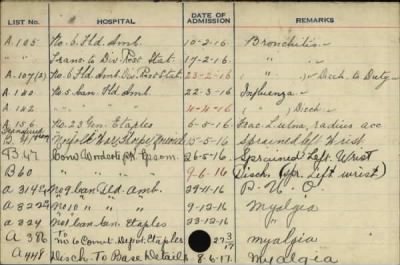 LIST No. HOSPITAL DATE OF ADMISSION REMARKS
A.105 No. 6. Fld. Amb. 10-2-16 Bronchitis
" Trans. to Div. Rest Stat. 17-2-16 "
A.107(3) No. 6 Fld. Amb. Div. Rest Stat. 23-2-16 " Disch. to Duty
A.140 No 5 Can. Fld. Amb. 22-3-16 Influenza
A.142 " " 10-4-16 " Disch.
A.156 No. 23 Gen. Etaples 6-5-16 Frac. L. ulna, radius acc
B. Norfolk War Hosp. 15-5-16 Sprained left Wrist.
B 47 Conv. Woodcote Pk. Epsom. 26-5-16 Sprained Left. Wrist
B60 " " 9-6-16 Disch. (Spr. Left wrist)
A 314 No 9 Can Fld. Amb. 29-11-16 P. U. O.
A 322 No 10 " " 9-12-16 Myalgia
A 324 No 1 Can Gen. Etaples 23-12-16 "
A 386 To No 6 Convt. Depot. Etaples 27 3/17 myalgia
A 448 Disch. To Base Details 8-6-17. Myalgia